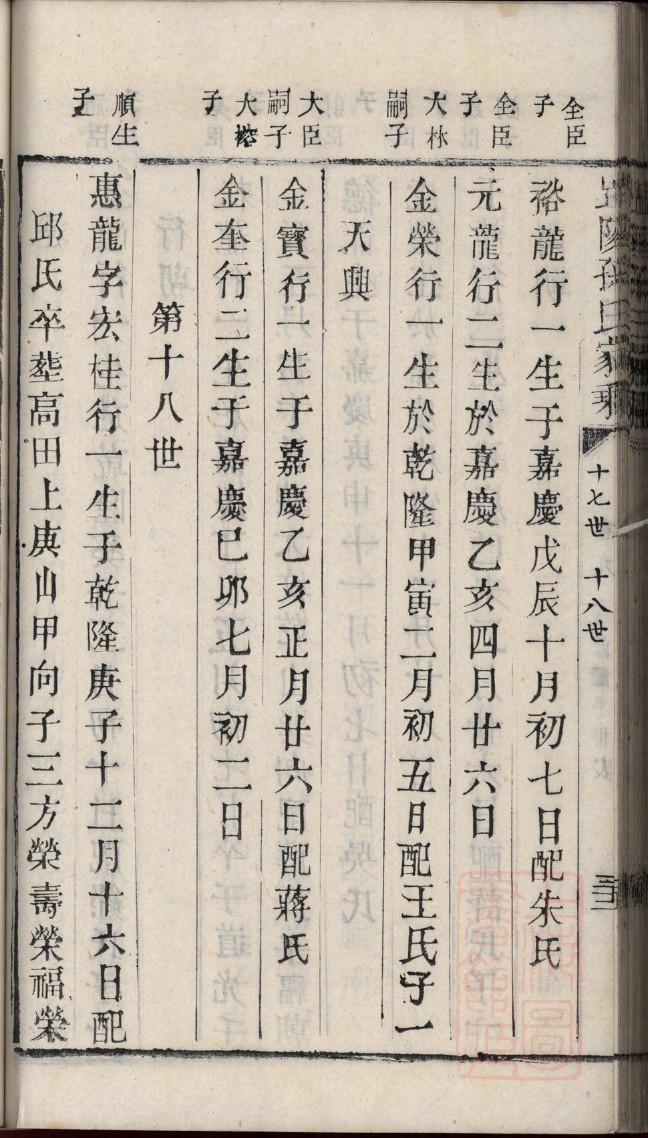 孫氏家乘
十七世 十八世
全臣子
裕龍行一生于嘉慶戊辰十月初七日配朱氏
全臣子
元龍行二生於嘉慶乙亥四月廿六日
大林嗣子
金榮行一生於乾隆甲寅二月初五日配王氏子一
天興
大臣嗣子
金寶行一生于嘉慶乙亥正月廿六日配蔣氏
大子
金奎行二生于嘉慶巳卯七月初二日
第十八世
順生子
惠龍字宏桂行一生于乾隆庚子十二月十六日配
邱氏卒塟高田上庚山甲向子三方榮壽榮福榮